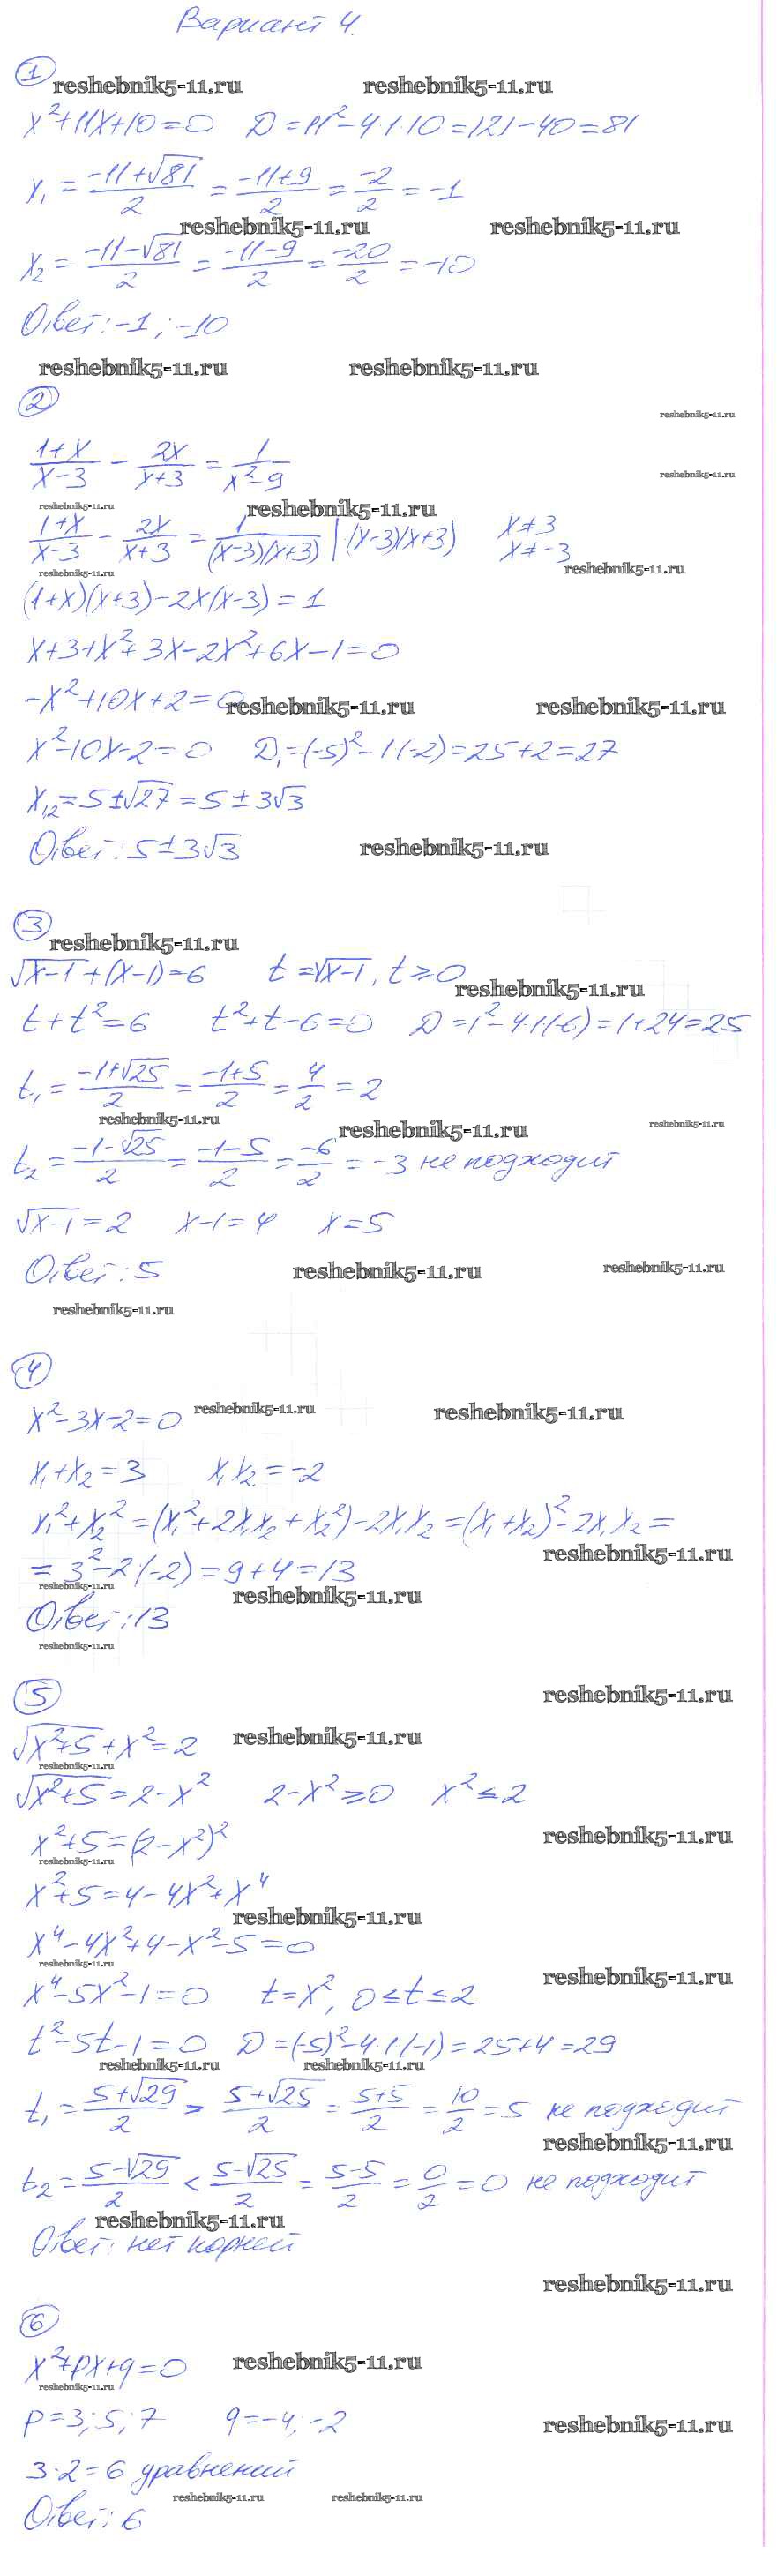 Вариант 4.
1
reshebnik5-11.ru reshebnik5-11.ru
x²+11x+10=0 D=11²-4·1·10=121-40=81
x₁ = (-11+√81)/2 = (-11+9)/2 = -2/2 = -1
reshebnik5-11.ru reshebnik5-11.ru
x₂ = (-11-√81)/2 = (-11-9)/2 = -20/2 = -10
Ответ: -1; -10
reshebnik5-11.ru reshebnik5-11.ru
2
reshebnik5-11.ru
(1+x)/(x-3) - 2x/(x+3) = 1/(x²-9)
reshebnik5-11.ru
reshebnik5-11.ru reshebnik5-11.ru
(1+x)/(x-3) - 2x/(x+3) = 1/((x-3)(x+3)) |·(x-3)(x+3) x≠3 x≠-3
reshebnik5-11.ru reshebnik5-11.ru
(1+x)(x+3)-2x(x-3)=1
x+3+x²+3x-2x²+6x-1=0
-x²+10x+2=0
reshebnik5-11.ru reshebnik5-11.ru
x²-10x-2=0 D₁=(-5)²-1·(-2)=25+2=27
x₁,₂=5±√27=5±3√3
Ответ: 5±3√3
reshebnik5-11.ru
3
reshebnik5-11.ru
√(x-1)+(x-1)=6 t=√(x-1), t≥0
reshebnik5-11.ru
t+t²=6 t²+t-6=0 D=1²-4·1·(-6)=1+24=25
t₁ = (-1+√25)/2 = (-1+5)/2 = 4/2 = 2
reshebnik5-11.ru reshebnik5-11.ru reshebnik5-11.ru
t₂ = (-1-√25)/2 = (-1-5)/2 = -6/2 = -3 не подходит
√(x-1)=2 x-1=4 x=5
Ответ: 5
reshebnik5-11.ru reshebnik5-11.ru
reshebnik5-11.ru
4
x²-3x-2=0
reshebnik5-11.ru reshebnik5-11.ru
x₁+x₂=3 x₁x₂=-2
x₁²+x₂²=(x₁²+2x₁x₂+x₂²)-2x₁x₂=(x₁+x₂)²-2x₁x₂=
reshebnik5-11.ru
=3²-2·(-2)=9+4=13
reshebnik5-11.ru reshebnik5-11.ru
Ответ: 13
reshebnik5-11.ru
5
reshebnik5-11.ru
√(x²+5)+x²=2
reshebnik5-11.ru
reshebnik5-11.ru
√(x²+5)=2-x² 2-x²≥0 x²≤2
x²+5=(2-x²)²
reshebnik5-11.ru
reshebnik5-11.ru
x²+5=4-4x²+x⁴
reshebnik5-11.ru
x⁴-4x²+4-x²-5=0
reshebnik5-11.ru reshebnik5-11.ru
x⁴-5x²-1=0 t=x², 0≤t≤2
t²-5t-1=0 D=(-5)²-4·1·(-1)=25+4=29
reshebnik5-11.ru reshebnik5-11.ru
t₁ = (5+√29)/2 > (5+√25)/2 = (5+5)/2 = 10/2 = 5 не подходит
reshebnik5-11.ru
t₂ = (5-√29)/2 < (5-√25)/2 = (5-5)/2 = 0/2 = 0 не подходит
reshebnik5-11.ru
Ответ: нет корней
reshebnik5-11.ru
6
x²+px+q=0
reshebnik5-11.ru
reshebnik5-11.ru
p=3; 5; 7 q=-4; -2
reshebnik5-11.ru
3·2=6 уравнений
reshebnik5-11.ru reshebnik5-11.ru
Ответ: 6